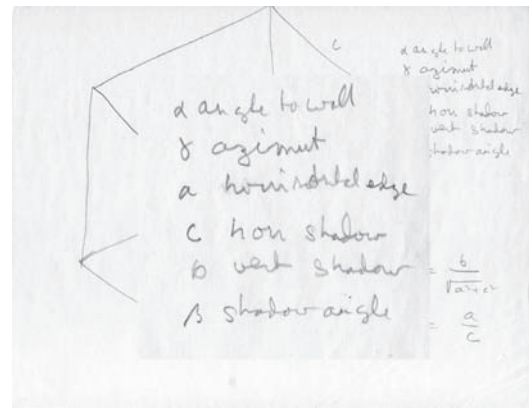 c
α angle to wall
γ azimut
horizontal edge
hori shadow
vert shadow
shadow angle
α angle to wall
γ azimut
a horizontal edge
c hori shadow
b vert shadow
β shadow angle
= b / √a²+c²
= a / c